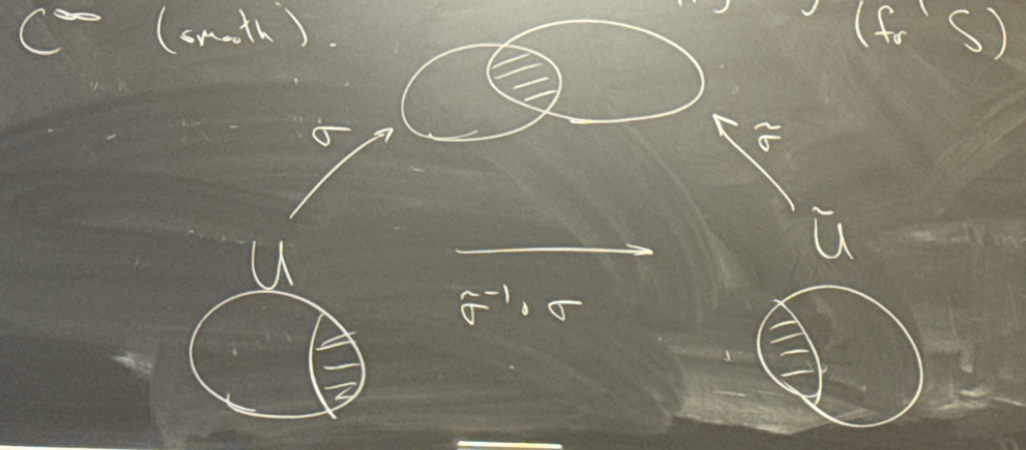 C^∞ (smooth).
(for S)
σ
σ̃
U
Ũ
σ̃⁻¹∘σ